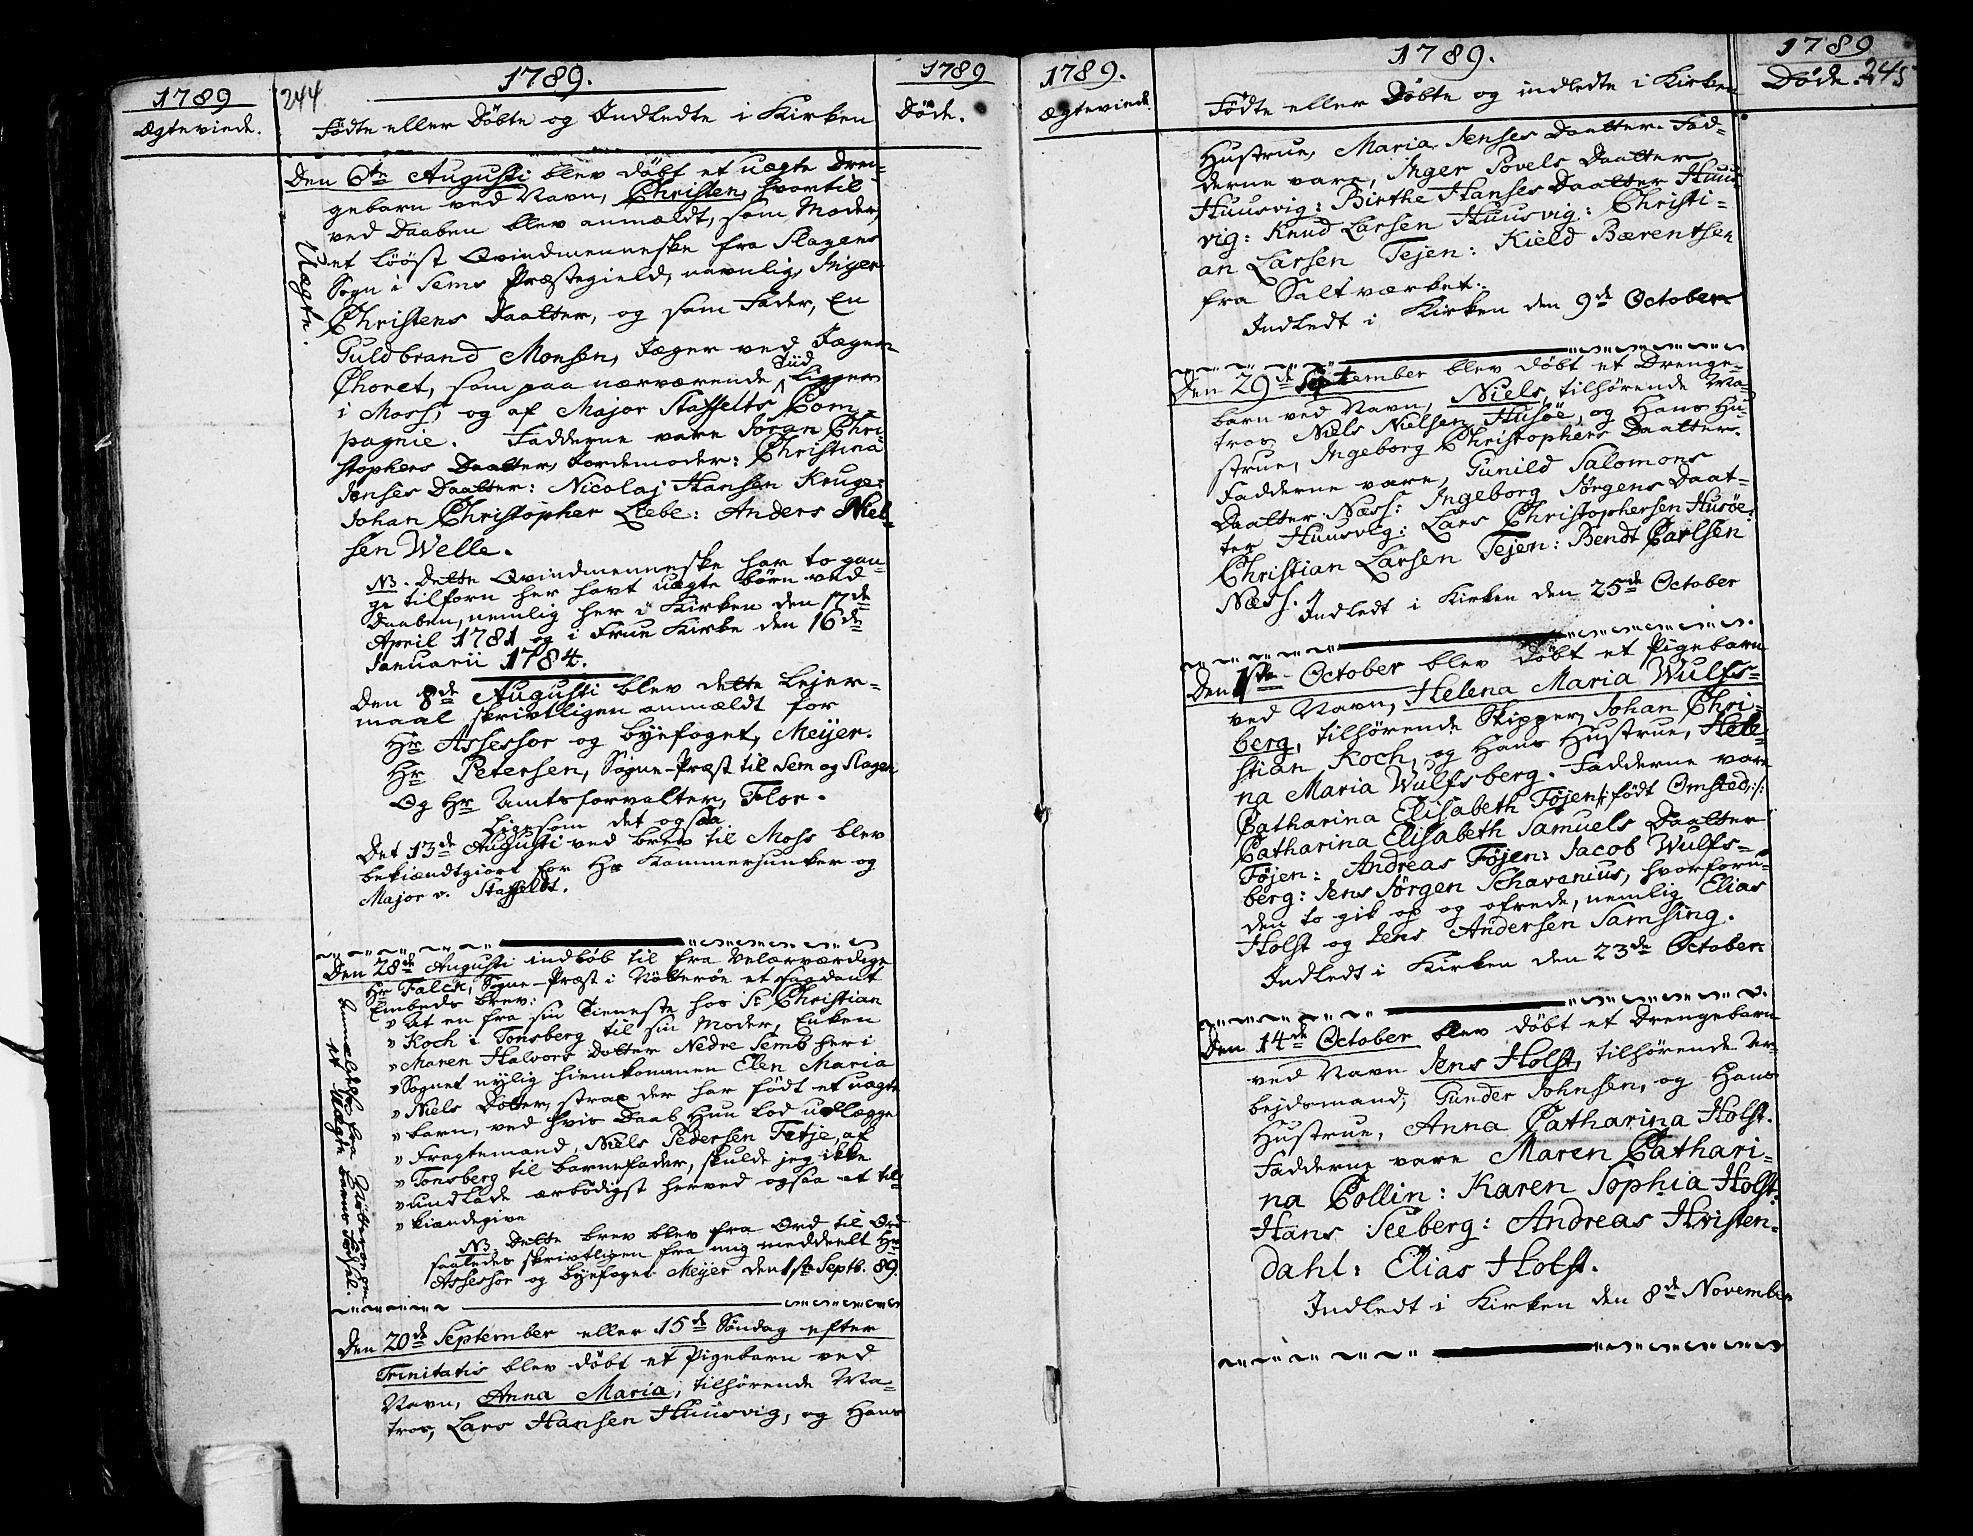 1789
Ægteviede.
244.
1789.
Fødte eller Døbte og Indledte i Kirken
1789
Døde.
Den 6te Augusti blev døbt et uægte Dren-
gebarn ved Navn, Christen, hvortil
ved Daaben blev anmældt, som Moder,
et løøst Qvindmenneske fra Slagens
Sogn i Sems Præstegield, navnlig, Inger
Christens Daatter, og som Fader, En
Guldbrand Monsen, Jæger ved Jæger-
Choret, som paa nærværende Tiid Ligger
i Moss, og af Major Staffelts Com-
pagnie. Fadderne vare Søran Chri-
stophers Daatter, Jordemoder: Christina
Jenses Daatter: Nicolaj Hansen Kruge:
Johan Christopher Liebe: Anders Niel-
sen Welle.
Uægte.
NB. Dette Qvindmenneske har to gan-
ge tilforn her havt uægte børn ved
Daaben, nemlig her i Kirken den 17de
April 1781 og i Frue Kirke den 16de
Januarii 1784.
Den 8de Augusti blev dette Lejer-
maal skrivtligen anmældt for
Hr Assessor og byefoget, Meyer.
Hr Petersen, Sogne-Præst til Sem og Slagen
Og Hr Amtsforvalter, Flor.
Ligesom det ogsaa
Det 13de Augusti ved brev til Moss blev
bekiændtgiort for Hr Kammerjunker og
Major v. Staffeldt.
Den 28de Augusti indløb til fra Velærværdige
Hr Falck, Sogne-Præst i Nøtterøe et saadant
Embeds brev:
" At en fra sin Tieneste hos Sr Christian
" Koch i Tonsberg til sin Moder, Enken
" Maren Halvors Dotter Nedre Semb her i
" Sognet nylig hiemkommen Elen Maria
" Niels Dotter, strax der har født et uægte
" barn, ved hvis Daab Hun lod udlægge
" Fragtemand, Niels Pedersen Tetje, af
" Tonsberg til barnefader, skulde jeg ikke
" undlade ærbødigst herved ogsaa at til-
" kiændegive
Anmældelse fra Nøtterøe om
et Uægte barns Fødsel.
NB. Dette brev blev fra Ord til Ord
saaledes skrivtligen fra mig meddeelt Hr
Assessor og byefoget Meyer den 1ste Septb. 89.
Den 20de September eller 15de Søndag efter
Trinitatis blev døbt et Pigebarn ved
Navn, Anna Maria, tilhørende Ma-
tros, Lars Hansen Huusvig, og Hans
1789.
Ægteviede.
1789.
Fødte eller Døbte og indledte i Kirken
1789
Døde.
245
Hustrue, Maria Jenses Daatter. Fad-
derne vare, Inger Povels Daatter
Huusvig: Birthe Hanses Daatter Huus-
vig: Knud Larsen Huusvig: Christi-
an Larsen Tejen: Kield Bærentsen
fra Saltværket.
Indledt i Kirken den 9de October.
Den 29de September blev døbt et Drenge-
barn ved Navn, Niels, tilhørende Ma-
tros Niels Nielsen Husøe, og Hans Hu-
strue, Ingeborg Christophers Daatter.
Fadderne vare, Gunild Salomons
Daatter Næss: Ingeborg Jørgens Daat-
ter Huusvig: Lars Christophersen Husøe:
Christian Larsen Tejen: Bendt Carlsen
Næss.
Indledt i Kirken den 25de October
Den 1ste October blev døbt et Pigebarn
ved Navn, Helena Maria Wulfs-
berg, tilhørende Skipper, Johan Chri-
stian Koch, og Hans Hustrue, Hele-
na Maria Wulfsberg. Fadderne vare
Catharina Elisabeth Føjen /: født Omsted :/:
Catharina Elisabeth Samuels Daatter
Føjen: Andreas Føjen: Jacob Wulfs-
berg: Jens Jørgen Schavenius, hvorforu-
den to gik op og ofrede, nemlig Elias
Holst og Jens Andersen Samsing.
Indledt i Kirken den 23de October.
Den 14de October blev døbt et Drengebarn
ved Navn Jens Holst, tilhørende Ar-
bejdsmand, Gunder Johnsen, og Hans
Hustrue, Anna Catharina Holst.
Fadderne vare Maren Cathari-
na Collin: Karen Sophia Holst:
Hans Seeberg: Andreas Hvisten-
dahl: Elias Holst.
Indledt i Kirken den 8de November